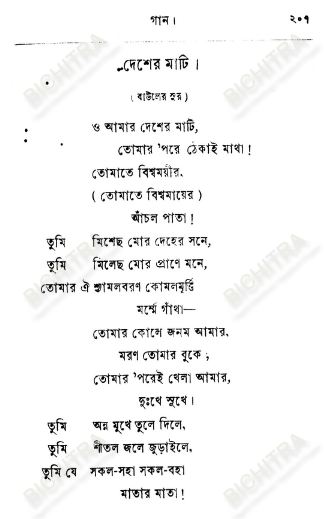 গান।
২০৭
দেশের মাটি।
( বাউলের সুর )
ও আমার দেশের মাটি,
তোমার 'পরে ঠেকাই মাথা!
তোমাতে বিশ্বময়ীর,
( তোমাতে বিশ্বমায়ের )
আঁচল পাতা!
তুমি মিশেছ মোর দেহের সনে,
তুমি মিলেছ মোর প্রাণে মনে,
তোমার ঐ শ্যামলবরণ কোমলমূর্ত্তি
মর্ম্মে গাঁথা—
তোমার কোলে জনম আমার,
মরণ তোমার বুকে;
তোমার 'পরেই খেলা আমার,
দুঃখে সুখে।
তুমি অন্ন মুখে তুলে দিলে,
তুমি শীতল জলে জুড়াইলে,
তুমি যে সকল-সহা সকল-বহা
মাতার মাতা!
BICHITRA
BICHITRA
BICHITRA
BICHITRA
BICHITRA
BICHITRA